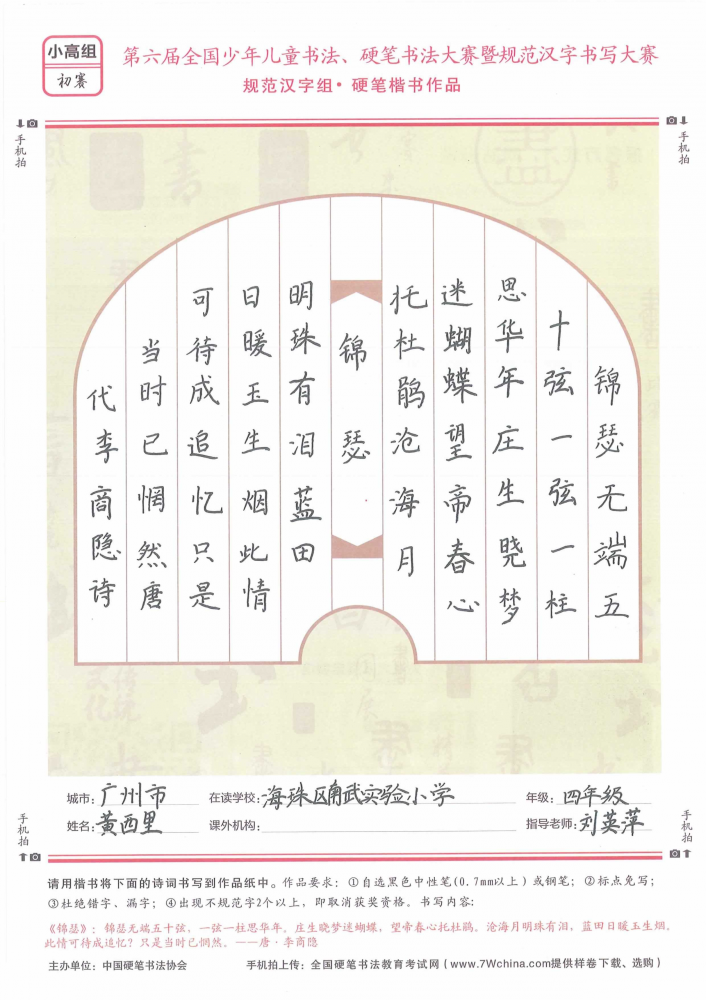 小高组
初赛
第六届全国少年儿童书法、硬笔书法大赛暨规范汉字书写大赛
规范汉字组·硬笔楷书作品
手机拍
手机拍
锦瑟无端五
十弦一弦一柱
思华年庄生晓梦
迷蝴蝶望帝春心
托杜鹃沧海月
锦瑟
明珠有泪蓝田
日暖玉生烟此情
可待成追忆只是
当时已惘然唐
代李商隐诗
城市：广州市 在读学校：海珠区南武实验小学 年级：四年级
姓名：黄西里 课外机构： 指导老师：刘英萍
手机拍
手机拍
请用楷书将下面的诗词书写到作品纸中。作品要求：①自选黑色中性笔(0.7mm以上)或钢笔；②标点免写；
③杜绝错字、漏字；④出现不规范字2个以上，即取消获奖资格。书写内容：
《锦瑟》：锦瑟无端五十弦，一弦一柱思华年。庄生晓梦迷蝴蝶，望帝春心托杜鹃。沧海月明珠有泪，蓝田日暖玉生烟。
此情可待成追忆？只是当时已惘然。——唐·李商隐
主办单位：中国硬笔书法协会 手机拍上传：全国硬笔书法教育考试网（www.7Wchina.com提供样卷下载、选购）